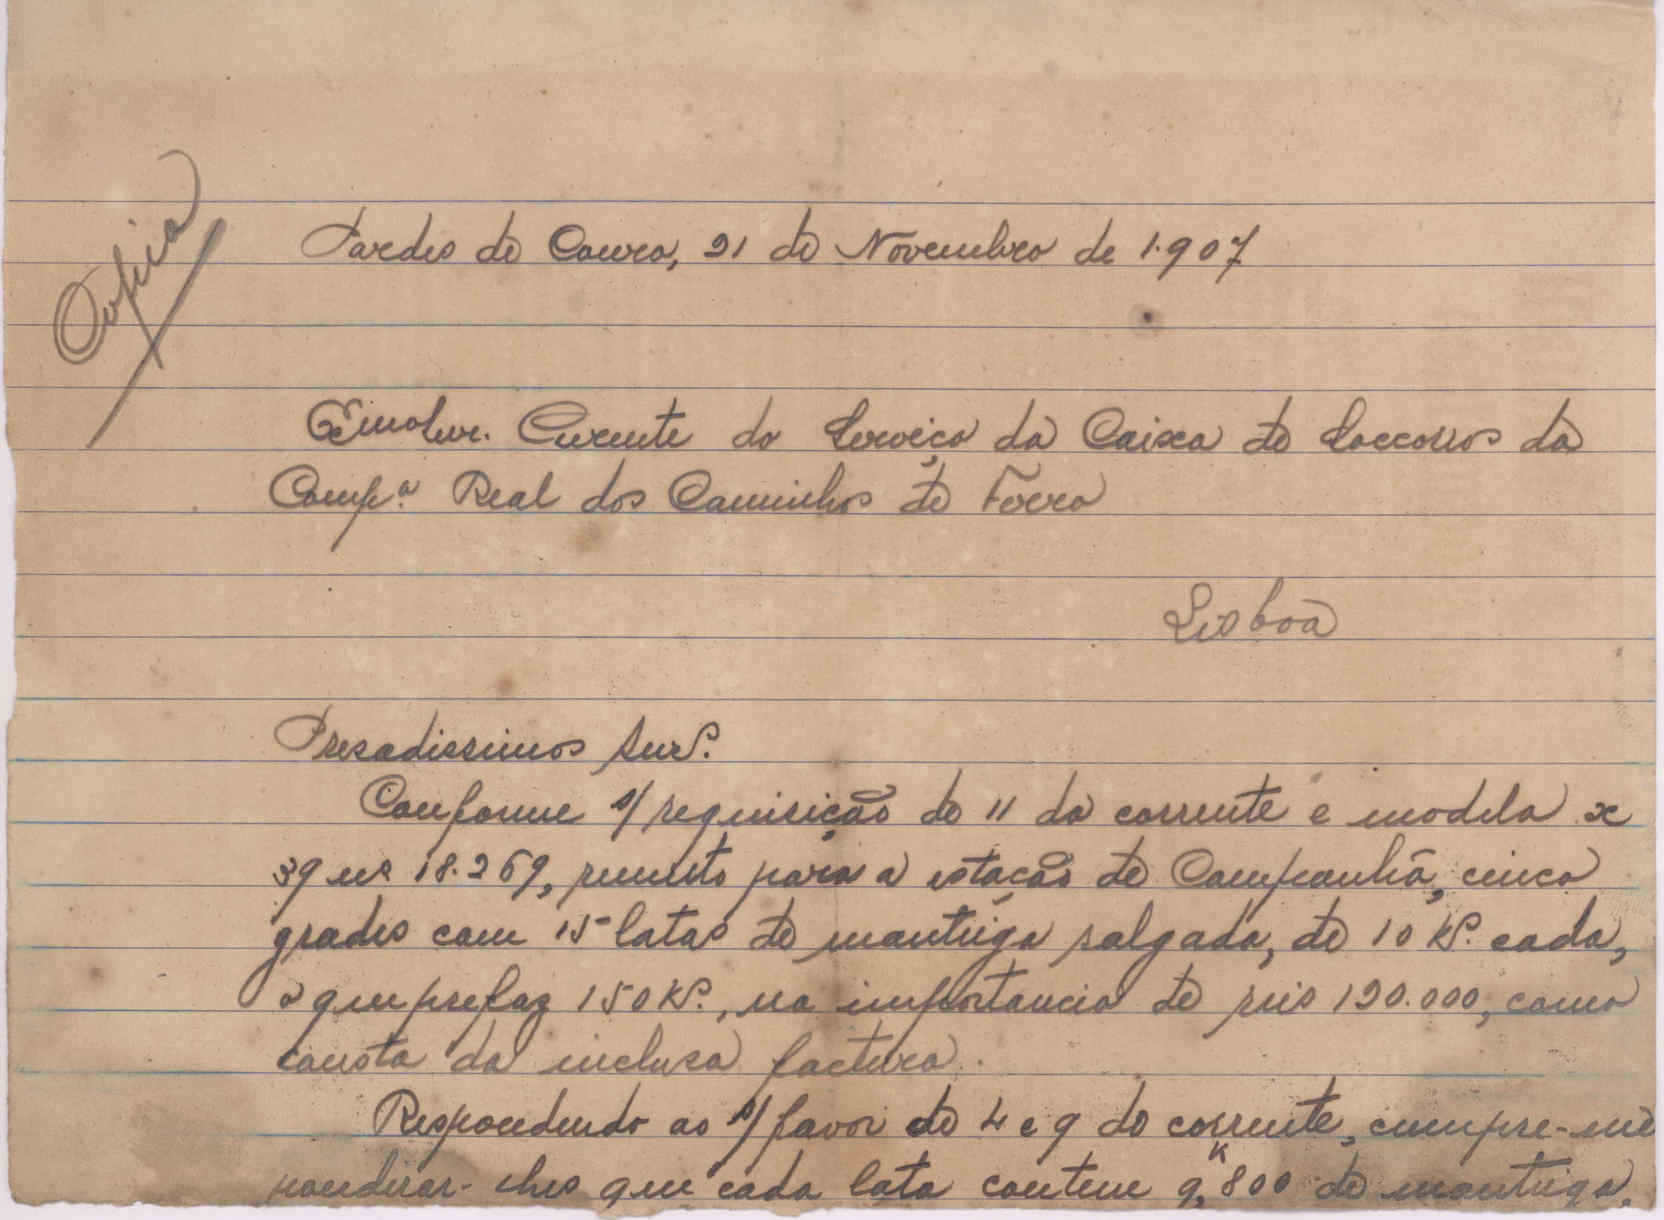 Copia
Pardes de Coura, 21 de Novembro de 1.907
Exmo Snr. Gerente do Serviço da Caixa de Soccorros da
Comp.ª Real dos Caminhos de Ferro
Lisboa
Presadissimos Snrs.
Conforme s/ requisição de 11 do corrente e modelo x
39 nº 18.269, remetto para a estação de Campanhã, cinco
grades com 15 latas de manteiga salgada, de 10 Ks. cada,
o que prefaz 150 Ks., na importancia de reis 120.000, como
consta da inclusa factura.
Respondendo ao s/ favor de 4 e 9 do corrente, cumpre-me
ponderar-lhes que cada lata contem 9,K800 de manteiga,